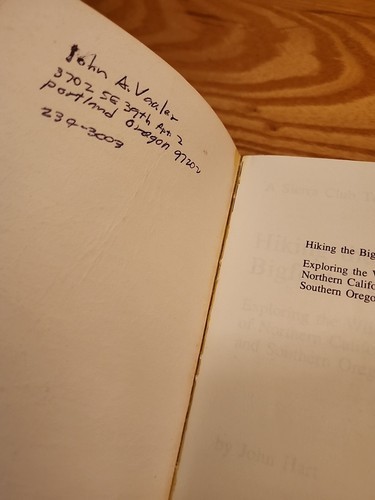 John A. Vaaler
3702 SE 39th Apt. 2
Portland Oregon 97202
234-3003
Hiking the Big
Exploring the
Northern Califo
Southern Orego
by John Hart